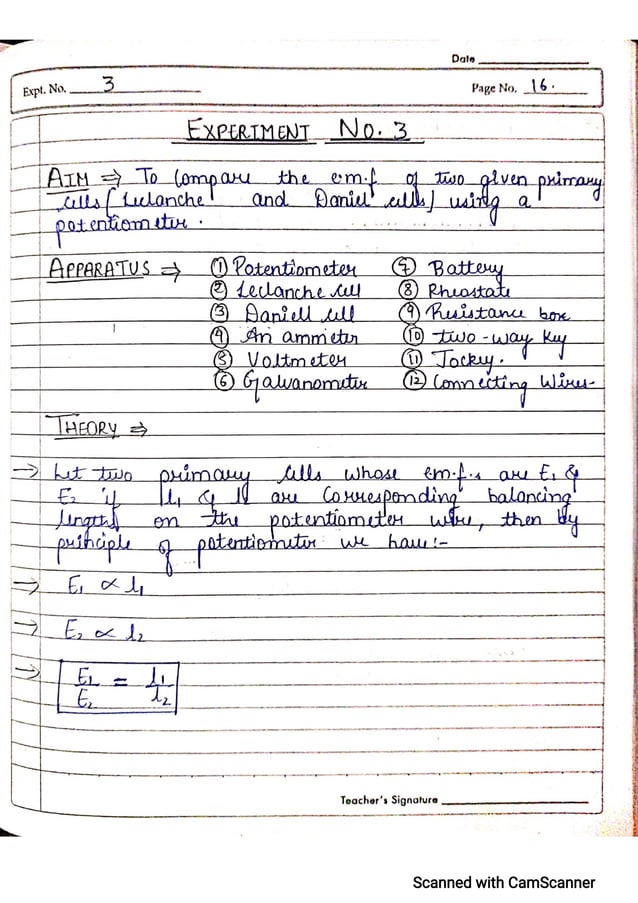 Date
Expt. No. 3
Page No. 16.
EXPERIMENT No. 3
AIM ⇒ To Compare the e.m.f of two given primary
cells (Leclanche and Daniel cells) using a
potentiometer.
APPARATUS ⇒ ① Potentiometer ⑦ Battery
② Leclanche cell ⑧ Rheostate
③ Daniell cell ⑨ Resistance box
④ An ammeter ⑩ two-way key
⑤ Voltmeter ⑪ Jockey.
⑥ Galvanometer ⑫ Connecting Wires-
THEORY ⇒
→ Let two primary cells whose em.f.s are E₁ &
E₂ if l₁ & are Corresponding balancing
lengths on the potentiometer wire, then by
principle of potentiometer we have:-
→ E₁ ∝ l₁
→ E₂ ∝ l₂
→ E₁ = l₁
E₂ l₂
Teacher's Signature
Scanned with CamScanner